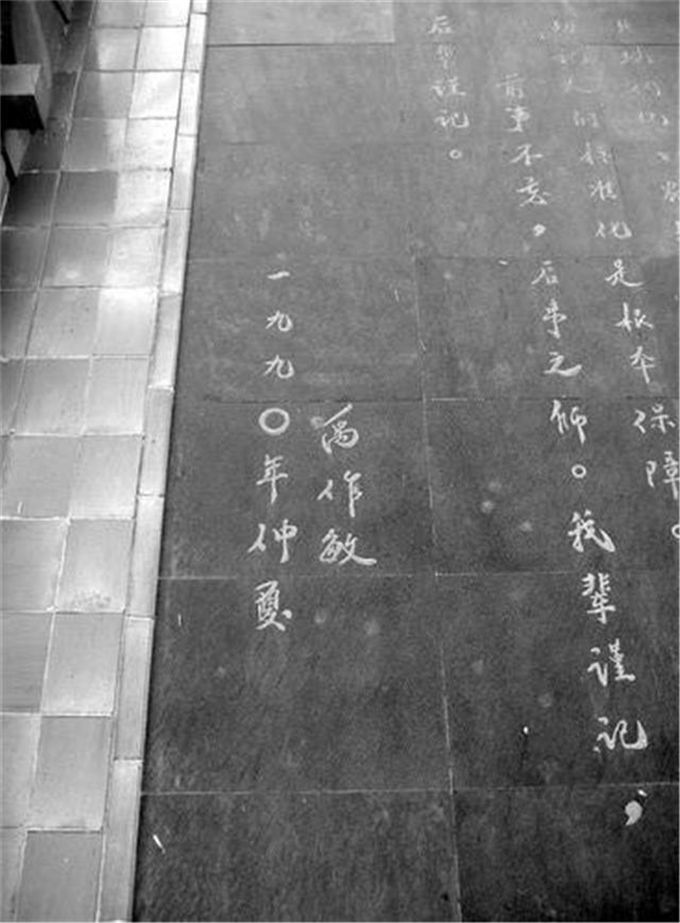 人的标准化是根本保障。
前事不忘，后事之师。我辈谨记，
后辈谨记。
禹作敏
一九九〇年仲夏